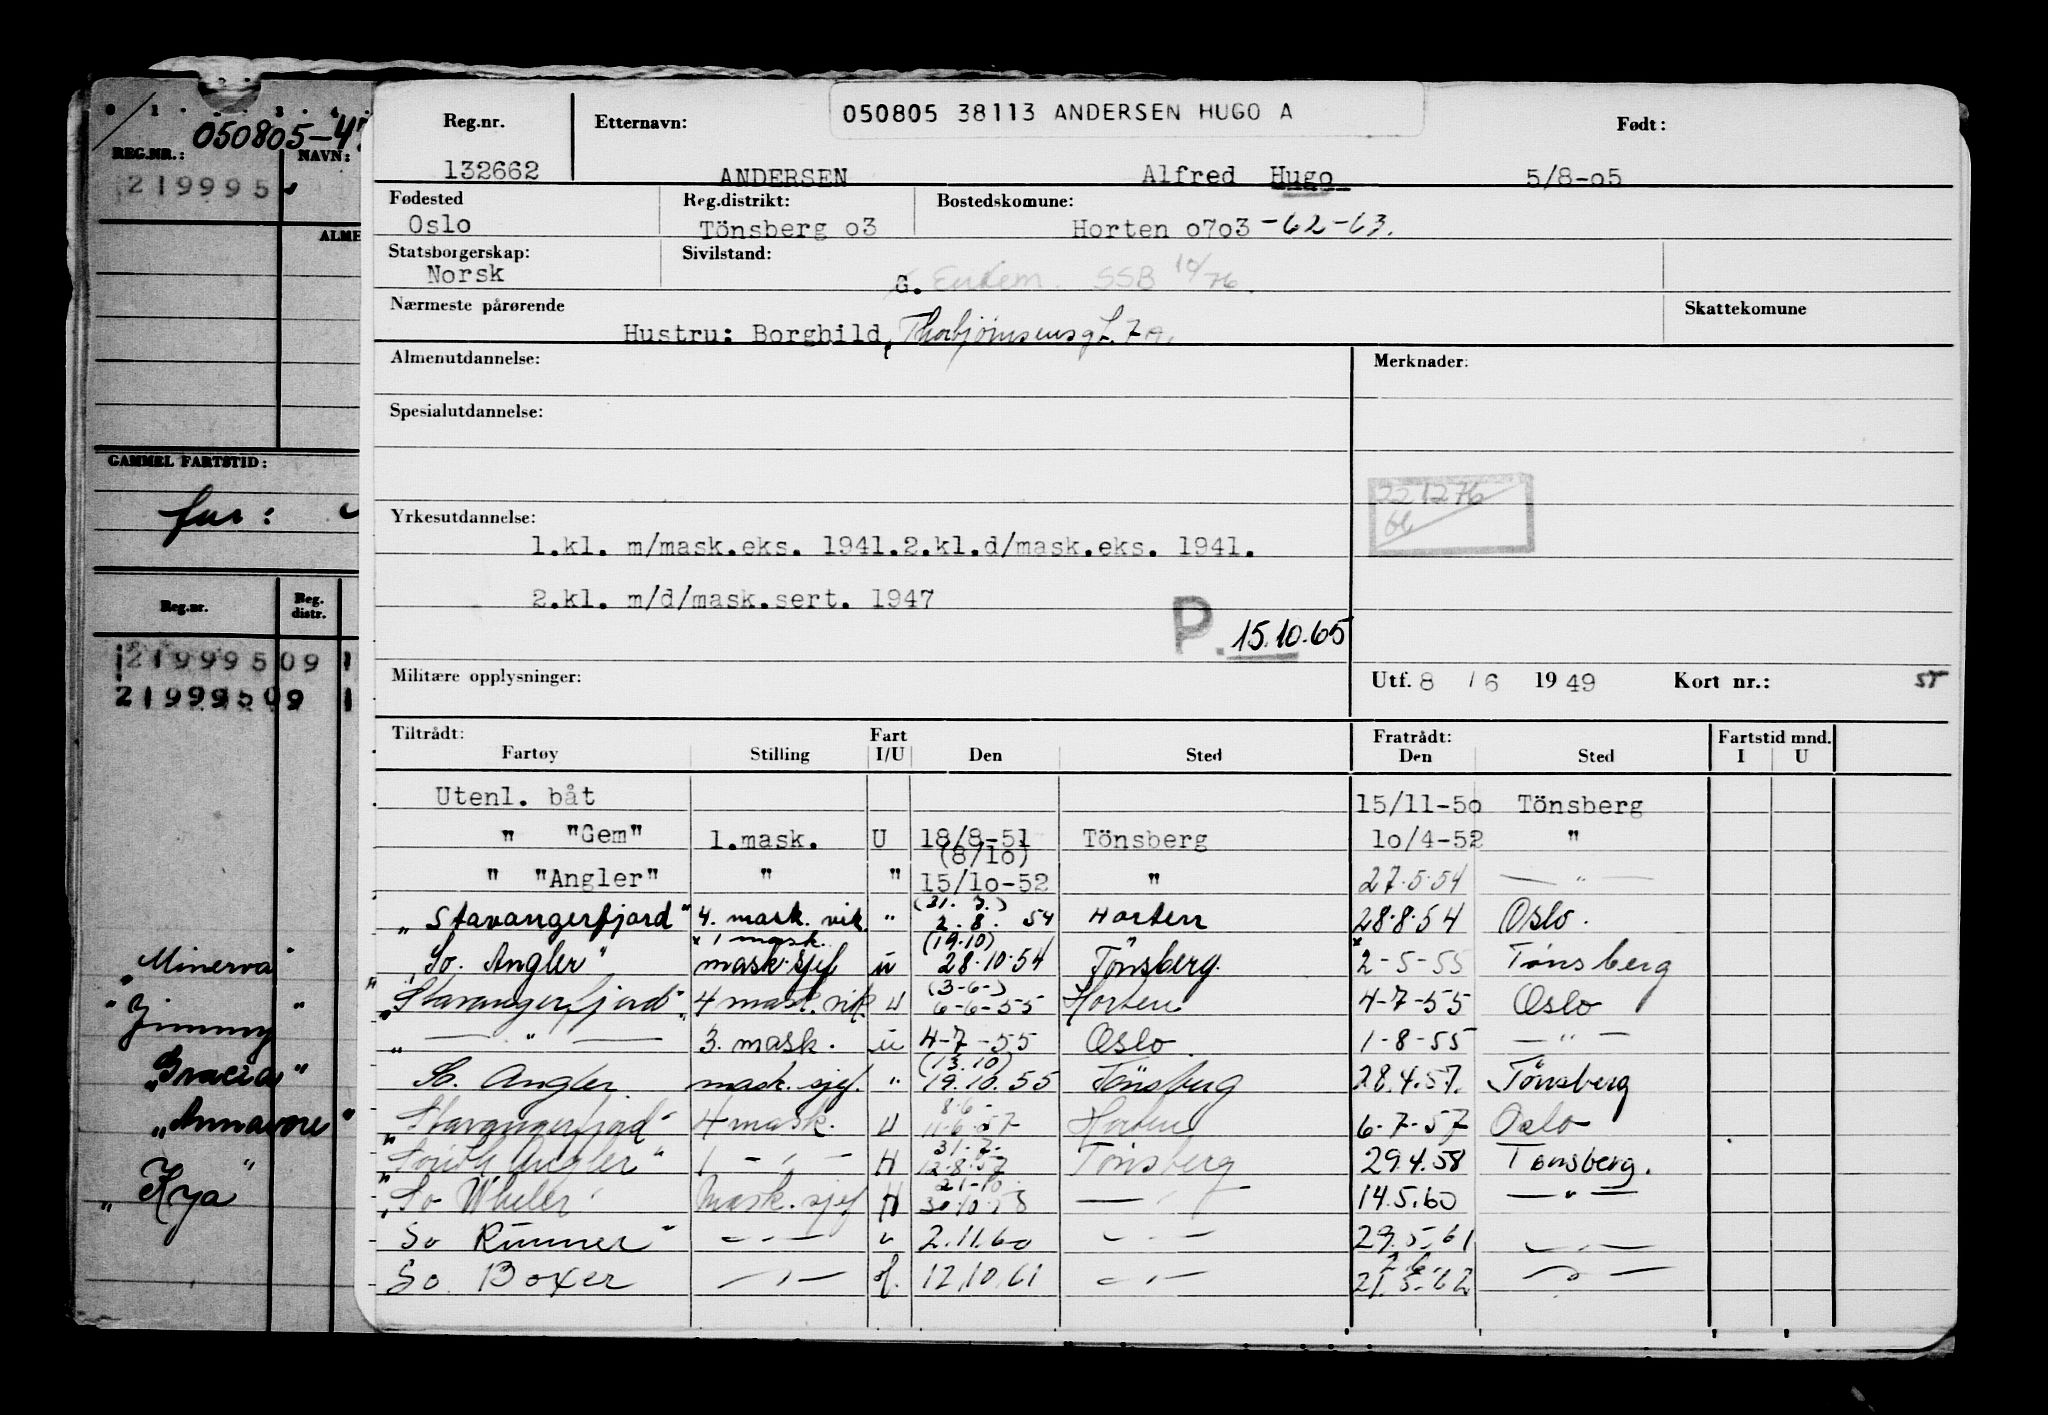 050805-4
REG.NR.: NAVN:
219995
ALME
GAMMEL FARTSTID:
før:
Reg.nr. Reg. distr.
21999509 1
21999509 1
"Minerva"
"Jimmy"
"Gracia"
"Annavore"
"Kya"
050805 38113 ANDERSEN HUGO A
Reg.nr. Etternavn: Født:
132662 ANDERSEN Alfred Hugo 5/8-05
Fødested Reg.distrikt: Bostedskomune:
Oslo Tönsberg 03 Horten 0703 -62-63.
Statsborgerskap: Sivilstand:
Norsk G. Enkem. SSB 10/76
Nærmeste pårørende Skattekomune
Hustru: Borghild, Thorbjørnsensgt. 7a.
Almenutdannelse: Merknader:
Spesialutdannelse:
221276
Yrkesutdannelse:
1.kl. m/mask.eks. 1941.2.kl.d/mask.eks. 1941.
2.kl. m/d/mask.sert. 1947
P. 15.10.65
Militære opplysninger: Utf. 8 / 6 1949 Kort nr.: 55
Tiltrådt: Fart Fratrådt: Fartstid mnd.
Fartøy Stilling I/U Den Sted Den Sted I U
Utenl. båt 15/11-50 Tönsberg
" "Gem" 1.mask. U 18/8-51 Tönsberg 10/4-52 "
(8/10)
" "Angler" " " 15/10-52 " 27.5.54 — " —
(31. 7.)
"Stavangerfjord" 4. mask. vik. " 2. 8. 54 Horten 28.8.54 Oslo.
x 1 mask. (19.10)
"So. Angler" mask.sjef u 28.10.54 Tönsberg. x 2-5-55 Tönsberg
(3-6-)
"Stavangerfjord" 4 mask. vik. U 6-6-55 Horten 4-7-55 Oslo
" — " — 3. mask. u 4-7-55 Oslo. 1-8-55 — " —
(13.10)
So. Angler mask. sjef. " 19.10.55 Tönsberg 28.4.57. Tönsberg
8-6-
"Stavangerfjord" 4 mask. U 11-6-57 Horten 6-7-57 Oslo
31.7.
"South Angler" 1 - " - U 12.8.57 Tönsberg 29.4.58 Tönsberg.
21-10.
"So Wheler" Mask. sjef U 30.10.58 — " — 14.5.60 — " —
So Runner" — " — u 2.11.60 — " — 29.5.61 — " —
2.6.
So. Boxer — " — 12.10.61 — " — 21.5.62 — " —